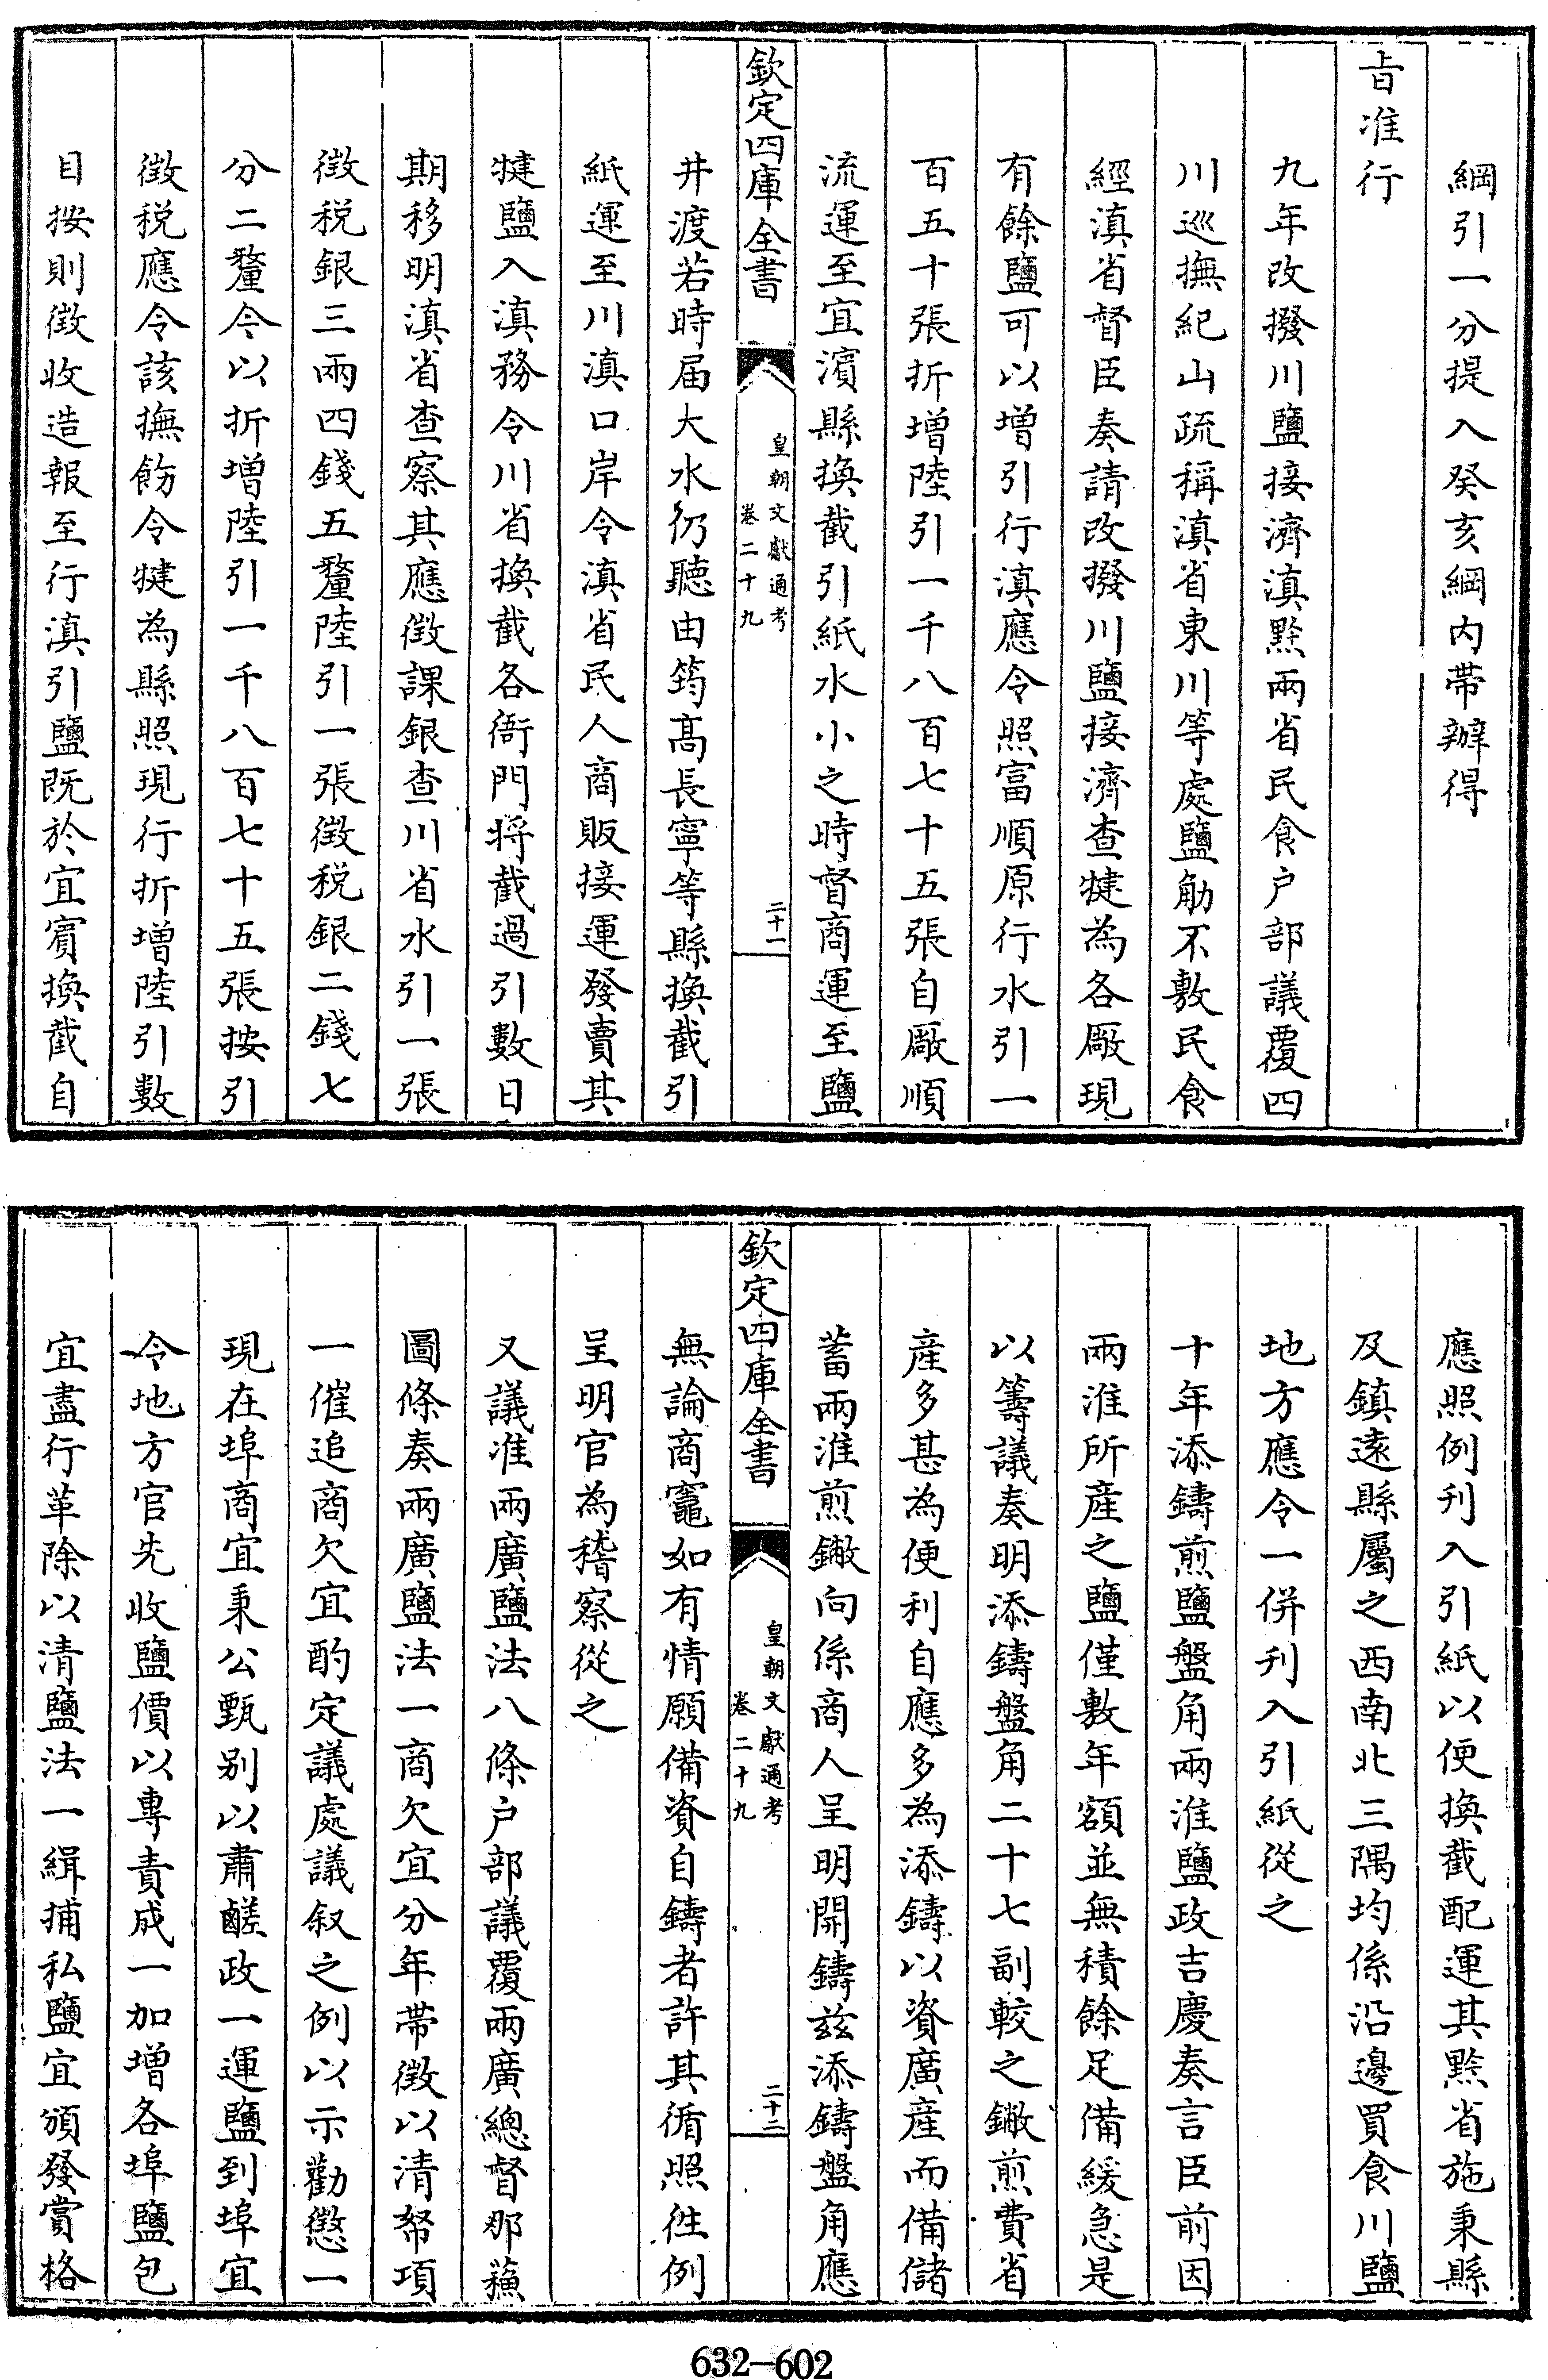 綱引一分提入癸亥綱內帶辦得
旨准行
九年改撥川鹽接濟滇黔兩省民食户部議覆四
川巡撫紀山疏稱滇省東川等處鹽觔不敷民食
經滇省督臣奏請改撥川鹽接濟查犍為各厰現
有餘鹽可以增引行滇應令照富順原行水引一
百五十張折增陸引一千八百七十五張自厰順
流運至宜濱縣換截引紙水小之時督商運至鹽
欽定四庫全書
皇朝文獻通考
卷二十九
二十一
井渡若時届大水仍聽由筠高長寧等縣換截引
紙運至川滇口岸令滇省民人商販接運發賣其
犍鹽入滇務令川省換截各衙門將截過引數日
期移明滇省查察其應徴課銀查川省水引一張
徴税銀三兩四錢五釐陸引一張徴税銀二錢七
分二釐今以折增陸引一千八百七十五張按引
徴税應令該撫飭令犍為縣照現行折增陸引數
目按則徴收造報至行滇引鹽既於宜賓換截自
應照例刋入引紙以便換截配運其黔省施秉縣
及鎮遠縣屬之西南北三隅均係沿邊買食川鹽
地方應令一併刋入引紙從之
十年添鑄煎鹽盤角兩淮鹽政吉慶奏言臣前因
兩淮所產之鹽僅敷年額並無積餘足備緩急是
以籌議奏明添鑄盤角二十七副較之鐝煎費省
產多甚為便利自應多為添鑄以資廣產而備儲
蓄兩淮煎鐝向係商人呈明開鑄兹添鑄盤角應
欽定四庫全書
皇朝文獻通考
卷二十九
二十二
無論商竈如有情願備資自鑄者許其循照往例
呈明官為稽察從之
又議准兩廣鹽法八條户部議覆兩廣總督那蘓
圖條奏兩廣鹽法一商欠宜分年帶徴以清帑項
一催追商欠宜酌定議處議叙之例以示勸懲一
現在埠商宜秉公甄别以肅鹺政一運鹽到埠宜
令地方官先收鹽價以專責成一加增各埠鹽包
宜盡行革除以清鹽法一緝捕私鹽宜頒發賞格
632-602